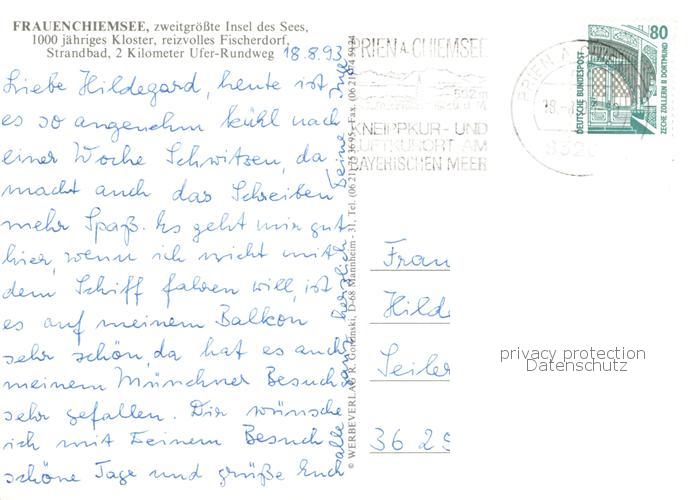 FRAUENCHIEMSEE, zweitgrößte Insel des Sees,
1000 jähriges Kloster, reizvolles Fischerdorf,
Strandbad, 2 Kilometer Ufer-Rundweg
18.8.93
Liebe Hildegard, heute ist
es so angenehm kühl nach
einer Woche Schwitzen, da
macht auch das Schreiben
mehr Spaß. Es geht mir gut
hier, wenn ich nicht mit
dem Schiff fahren will, ist
es auf meinem Balkon
sehr schön, da hat es auch
meinem Münchner Besuch
sehr gefallen. Dir wünsche
ich mit Deinem Besuch
schöne Tage und grüße Euch
alle ganz herzlich
Deine
© WERBEVERLAG R. Mannheim - 31, Tel.
PRIEN A. CHIEMSEE
KNEIPPKUR- UND
LUFTKURORT AM
BAYERISCHEN MEER
PRIEN A. CHIEMSEE
18.-8
DEUTSCHE BUNDESPOST
80
ZECHE ZOLLERN II DORTMUND
Frau
Hilde
Seiler
36 25
privacy protection
Datenschutz